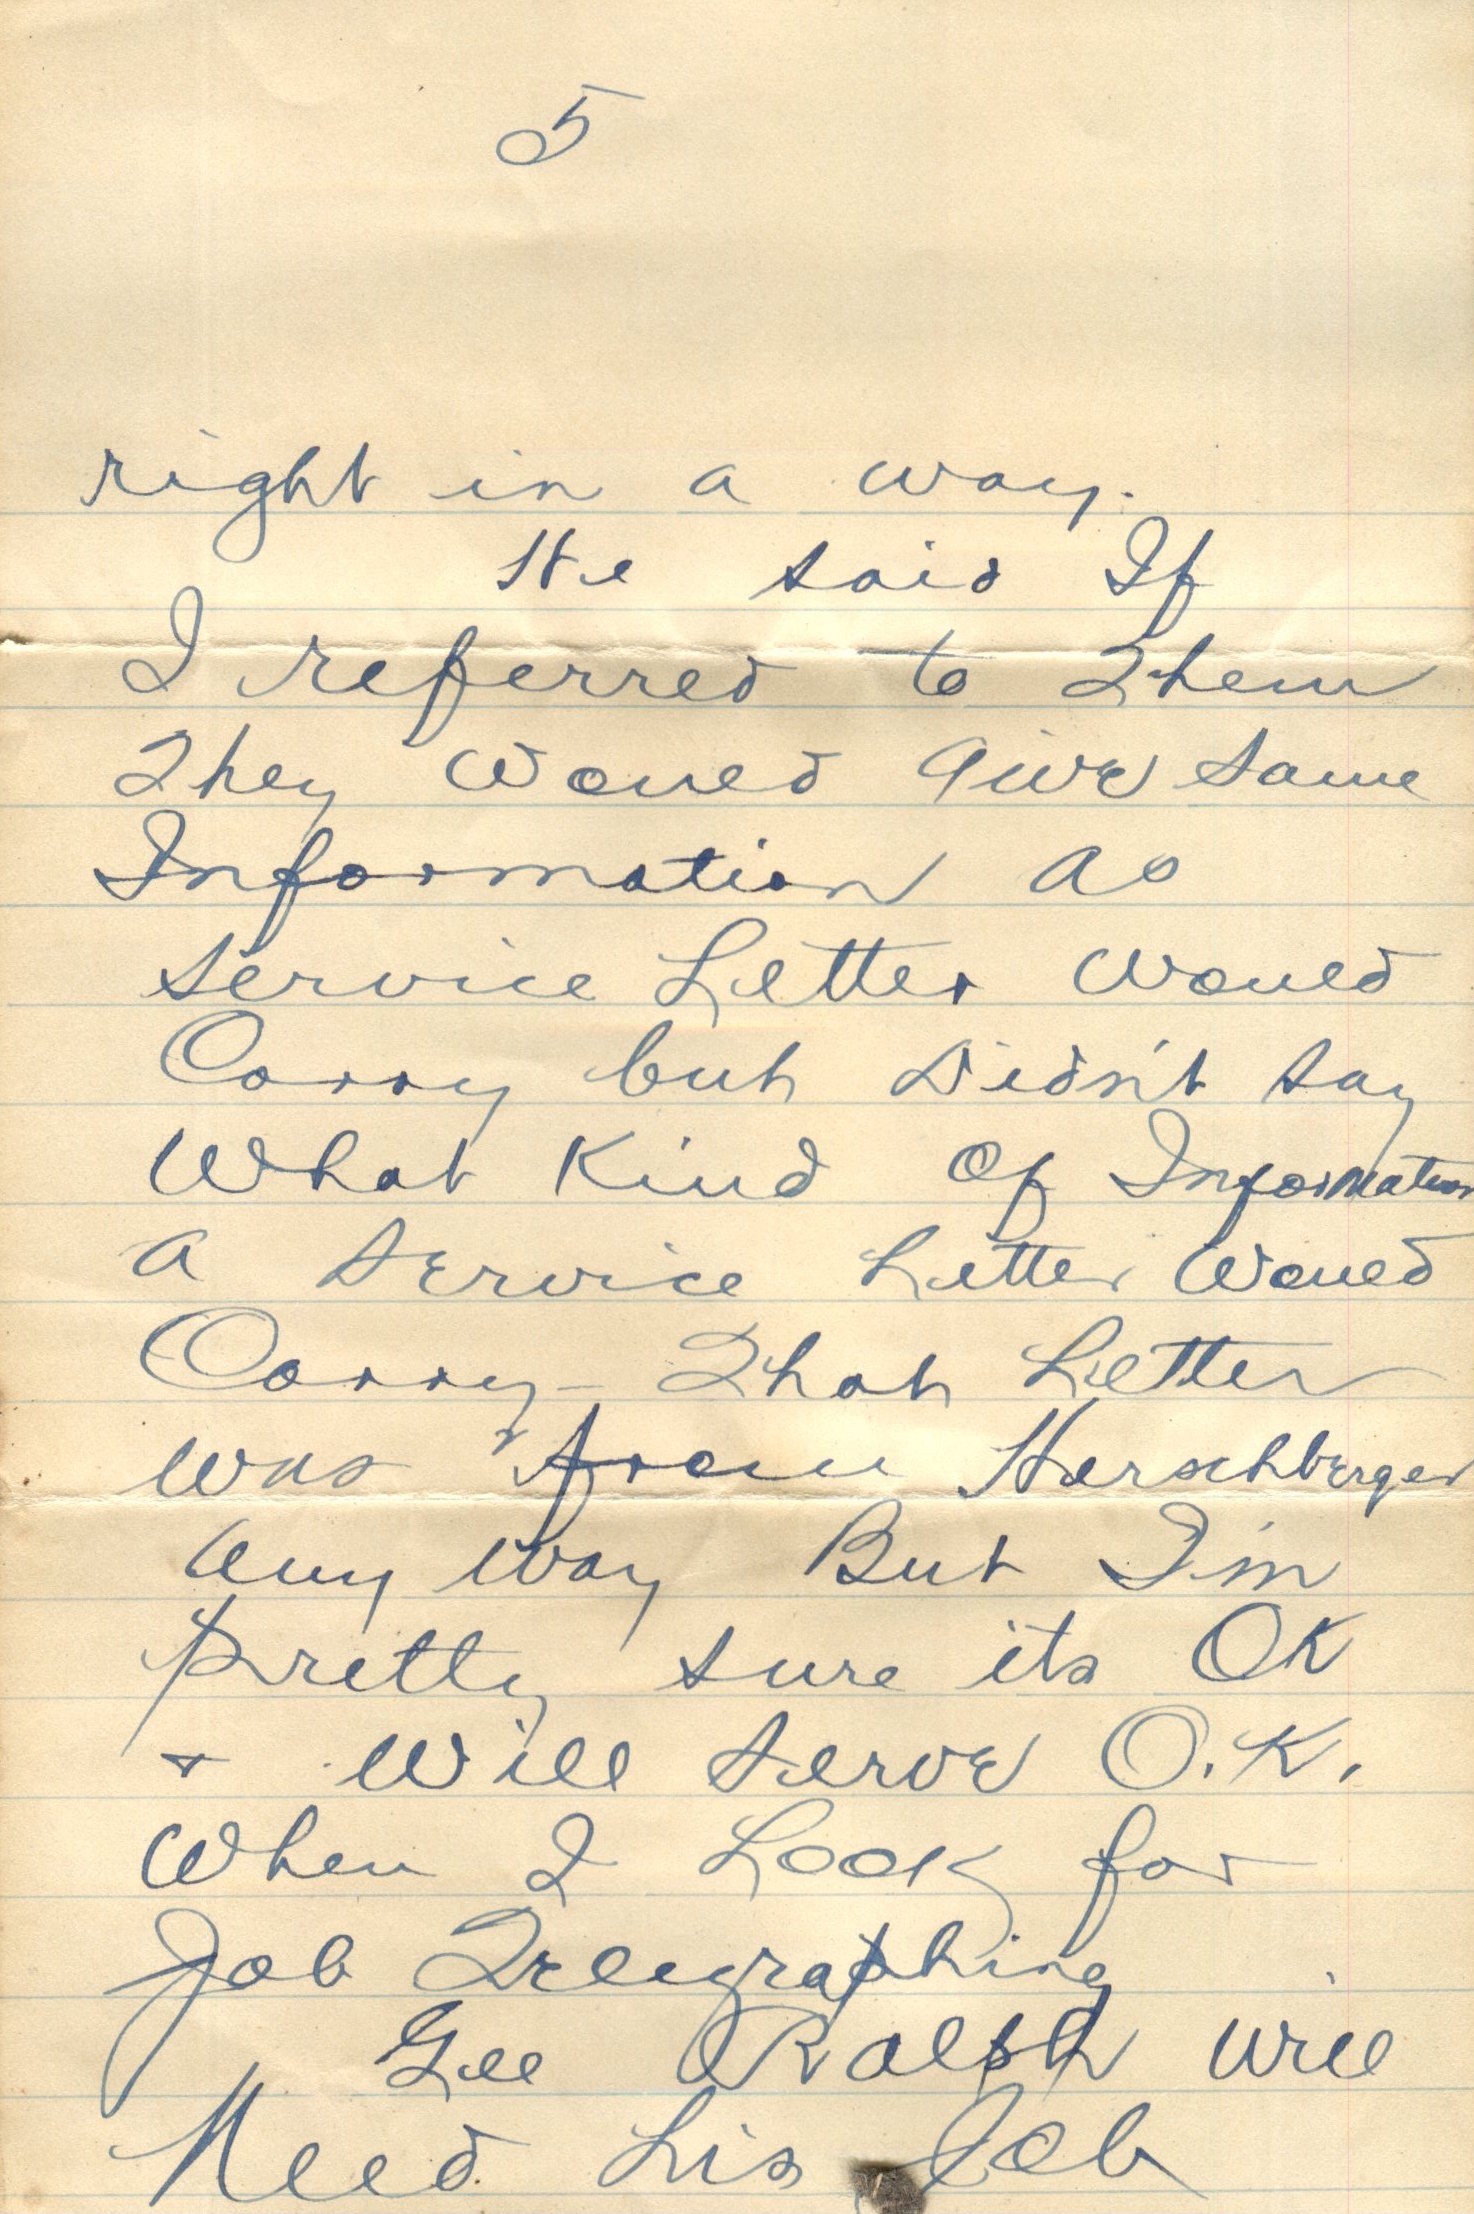 5
right in a way.
He said If
I referred to Them
They Would Give Same
Information as
Service Letter Would
Carry but Didn't Say
What Kind Of Information
a Service Letter Would
Carry - That Letter
was from Harschberger
any way But I'm
Pretty sure its OK
+ Will Serve O.K.
When I Look for
Job Telegraphing
Gee Ralph will
Need his Job